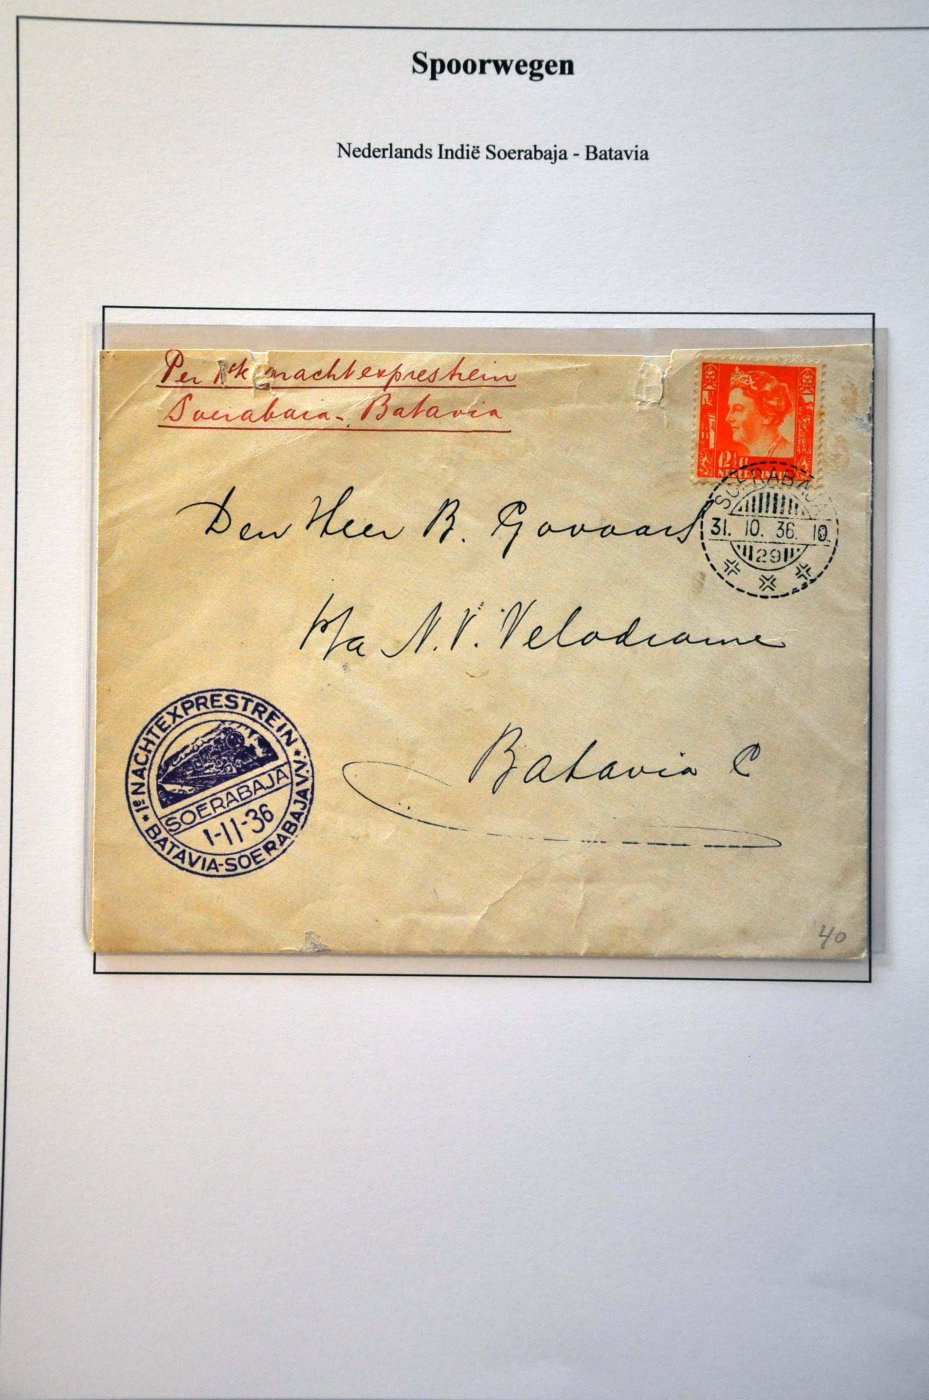 Spoorwegen
Nederlands Indië Soerabaja - Batavia
Per nachtexprestrein
Soerabaia - Batavia
SOERABAJA
31. 10. 36. 10
29
Den Heer B. Govaars
p/a N.V. Velodrome
Batavia C
1e NACHTEXPRESTREIN
SOERABAJA
1-11-36
BATAVIA-SOERABAJA V.V.
40